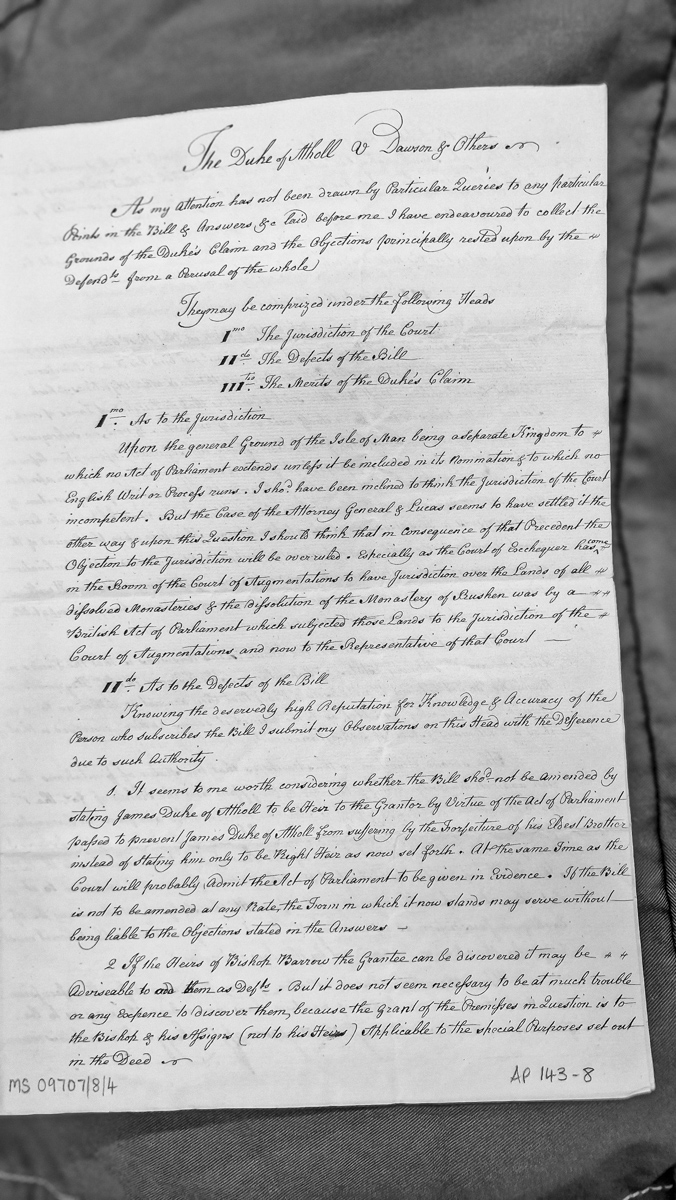 The Duke of Atholl V Dawson & Others
As my Attention has not been drawn by Particular Queries to any particular
Points in the Bill & Answers &c laid before me I have endeavoured to collect the
Grounds of the Duke's Claim and the Objections principally rested upon by the
Defendts from a Perusal of the whole
They may be comprized under the following Heads
Imo The Jurisdiction of the Court
IIdo The Defects of the Bill
IIItio. The Merits of the Duke's Claim
Imo. As to the Jurisdiction
Upon the general Ground of the Isle of Man being a separate Kingdom to
which no Act of Parliament extends unless it be included in its Nomination & to which no
English Writ or Process runs. I shod. have been inclined to think the Jurisdiction of the Court
incompetent. But the Case of the Attorney General & Lucas seems to have settled it the
other way & upon this Question I should think that in consequence of that Precedent the
Objection to the Jurisdiction will be over ruled. Especially as the Court of Exchequer has come
in the Room of the Court of Augmentations to have Jurisdiction over the Lands of all
dissolved Monasteries & the dissolution of the Monastery of Rushen was by a
British Act of Parliament which subjected those Lands to the Jurisdiction of the
Court of Augmentations and now to the Representative of that Court —
IIdo. As to the Defects of the Bill
Knowing the deservedly high Reputation for Knowledge & Accuracy of the
Person who subscribes the Bill I submit my Observations on this Head with the Defference
due to such Authority.
1. It seems to me worth considering whether the Bill shod. not be amended by
stating James Duke of Atholl to be Heir to the Grantor by Virtue of the Act of Parliament
passed to prevent James Duke of Atholl from suffering by the Forfeiture of his Eldest Brother
instead of stating him only to be Right Heir as now set forth. At the same Time as the
Court will probably Admit the Act of Parliament to be given in Evidence. If the Bill
is not to be amended at any Rate, the Form in which it now stands may serve without
being liable to the Objections stated in the Answers —
2 If the Heirs of Bishop Barrow the Grantee can be discovered it may be
Adviseable to add them as Defts. But it does not seem necessary to be at much trouble
or any Expence to discover them, because the Grant of the Premisses in Question is to
the Bishop & his Assigns (not to his Heirs) Applicable to the special Purposes set out
in the Deed
MS 09707/8/4
AP 143-8